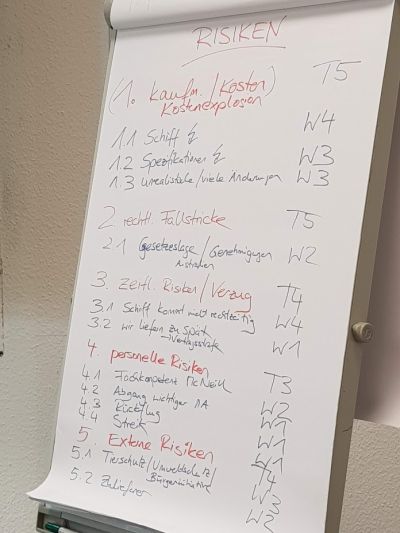 RISIKEN
(1. kaufm./Kosten) T5
Kostenexplosion
1.1 Schiff W4
1.2 Spezifikationen W3
1.3 unrealistische/viele Änderungen W3
2. rechtl. Fallstricke T5
2.1 Gesetzeslage/Genehmigungen W2
Australien
3. zeitl. Risiken/Verzug T4
3.1 Schiff kommt nicht rechtzeitig W4
3.2 wir liefern zu spät W1
→ Vertragsstrafe
4. personelle Risiken T3
4.1 Fachkompetent Mc Neill W2
4.2 Abgang wichtiger MA
4.3 Rückflug W1
4.4 Streik W1
5. Externe Risiken T4
5.1 Tierschutz/Umweltschutz/
Bürgerinitiative
5.2 Zulieferer W2